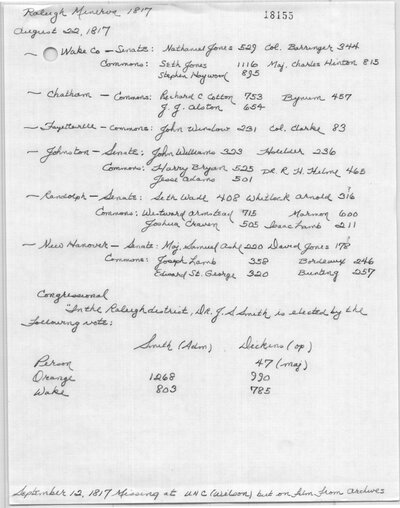 Raleigh Minerva 1817
18155
August 22, 1817
~ Wake Co - Senate: Nathaniel Jones 529 Col. Barringer 344
Commons: Seth Jones 1116 Maj. Charles Hinton 815
Stephen Haywood 895
~ Chatham - Commons: Richard C Cotton 753 Bynum 457
J. J. Alston 654
~ Fayetteville - Commons: John Winslow 231 Col. Clarke 83
~ Johnston - Senate: John Williams 323 Houlder 236
Commons: Harry Bryan 525 Dr. R. H. Helme 465
Jesse Adams 501
~ Randolph - Senate: Seth Wade 408 Whitlock Arnold
Commons: Westward Armstead 715 Marmon 600
Joshua Craven 505 Isaac Lamb 211
~ New Hanover - Senate: Maj. Samuel Ashe 220 David Jones 178
Commons: Joseph Lamb 358 Bordeaux 246
Edward St. George 320 Bunting 257
Congressional
In the Raleigh district, Dr. J. S Smith is elected by the
following vote:
Smith (Adm) Dickins (op)
Person 47 (maj)
Orange 1268 990
Wake 803 785
September 12, 1817 Missing at UNC (Wilson) but on film from Archives